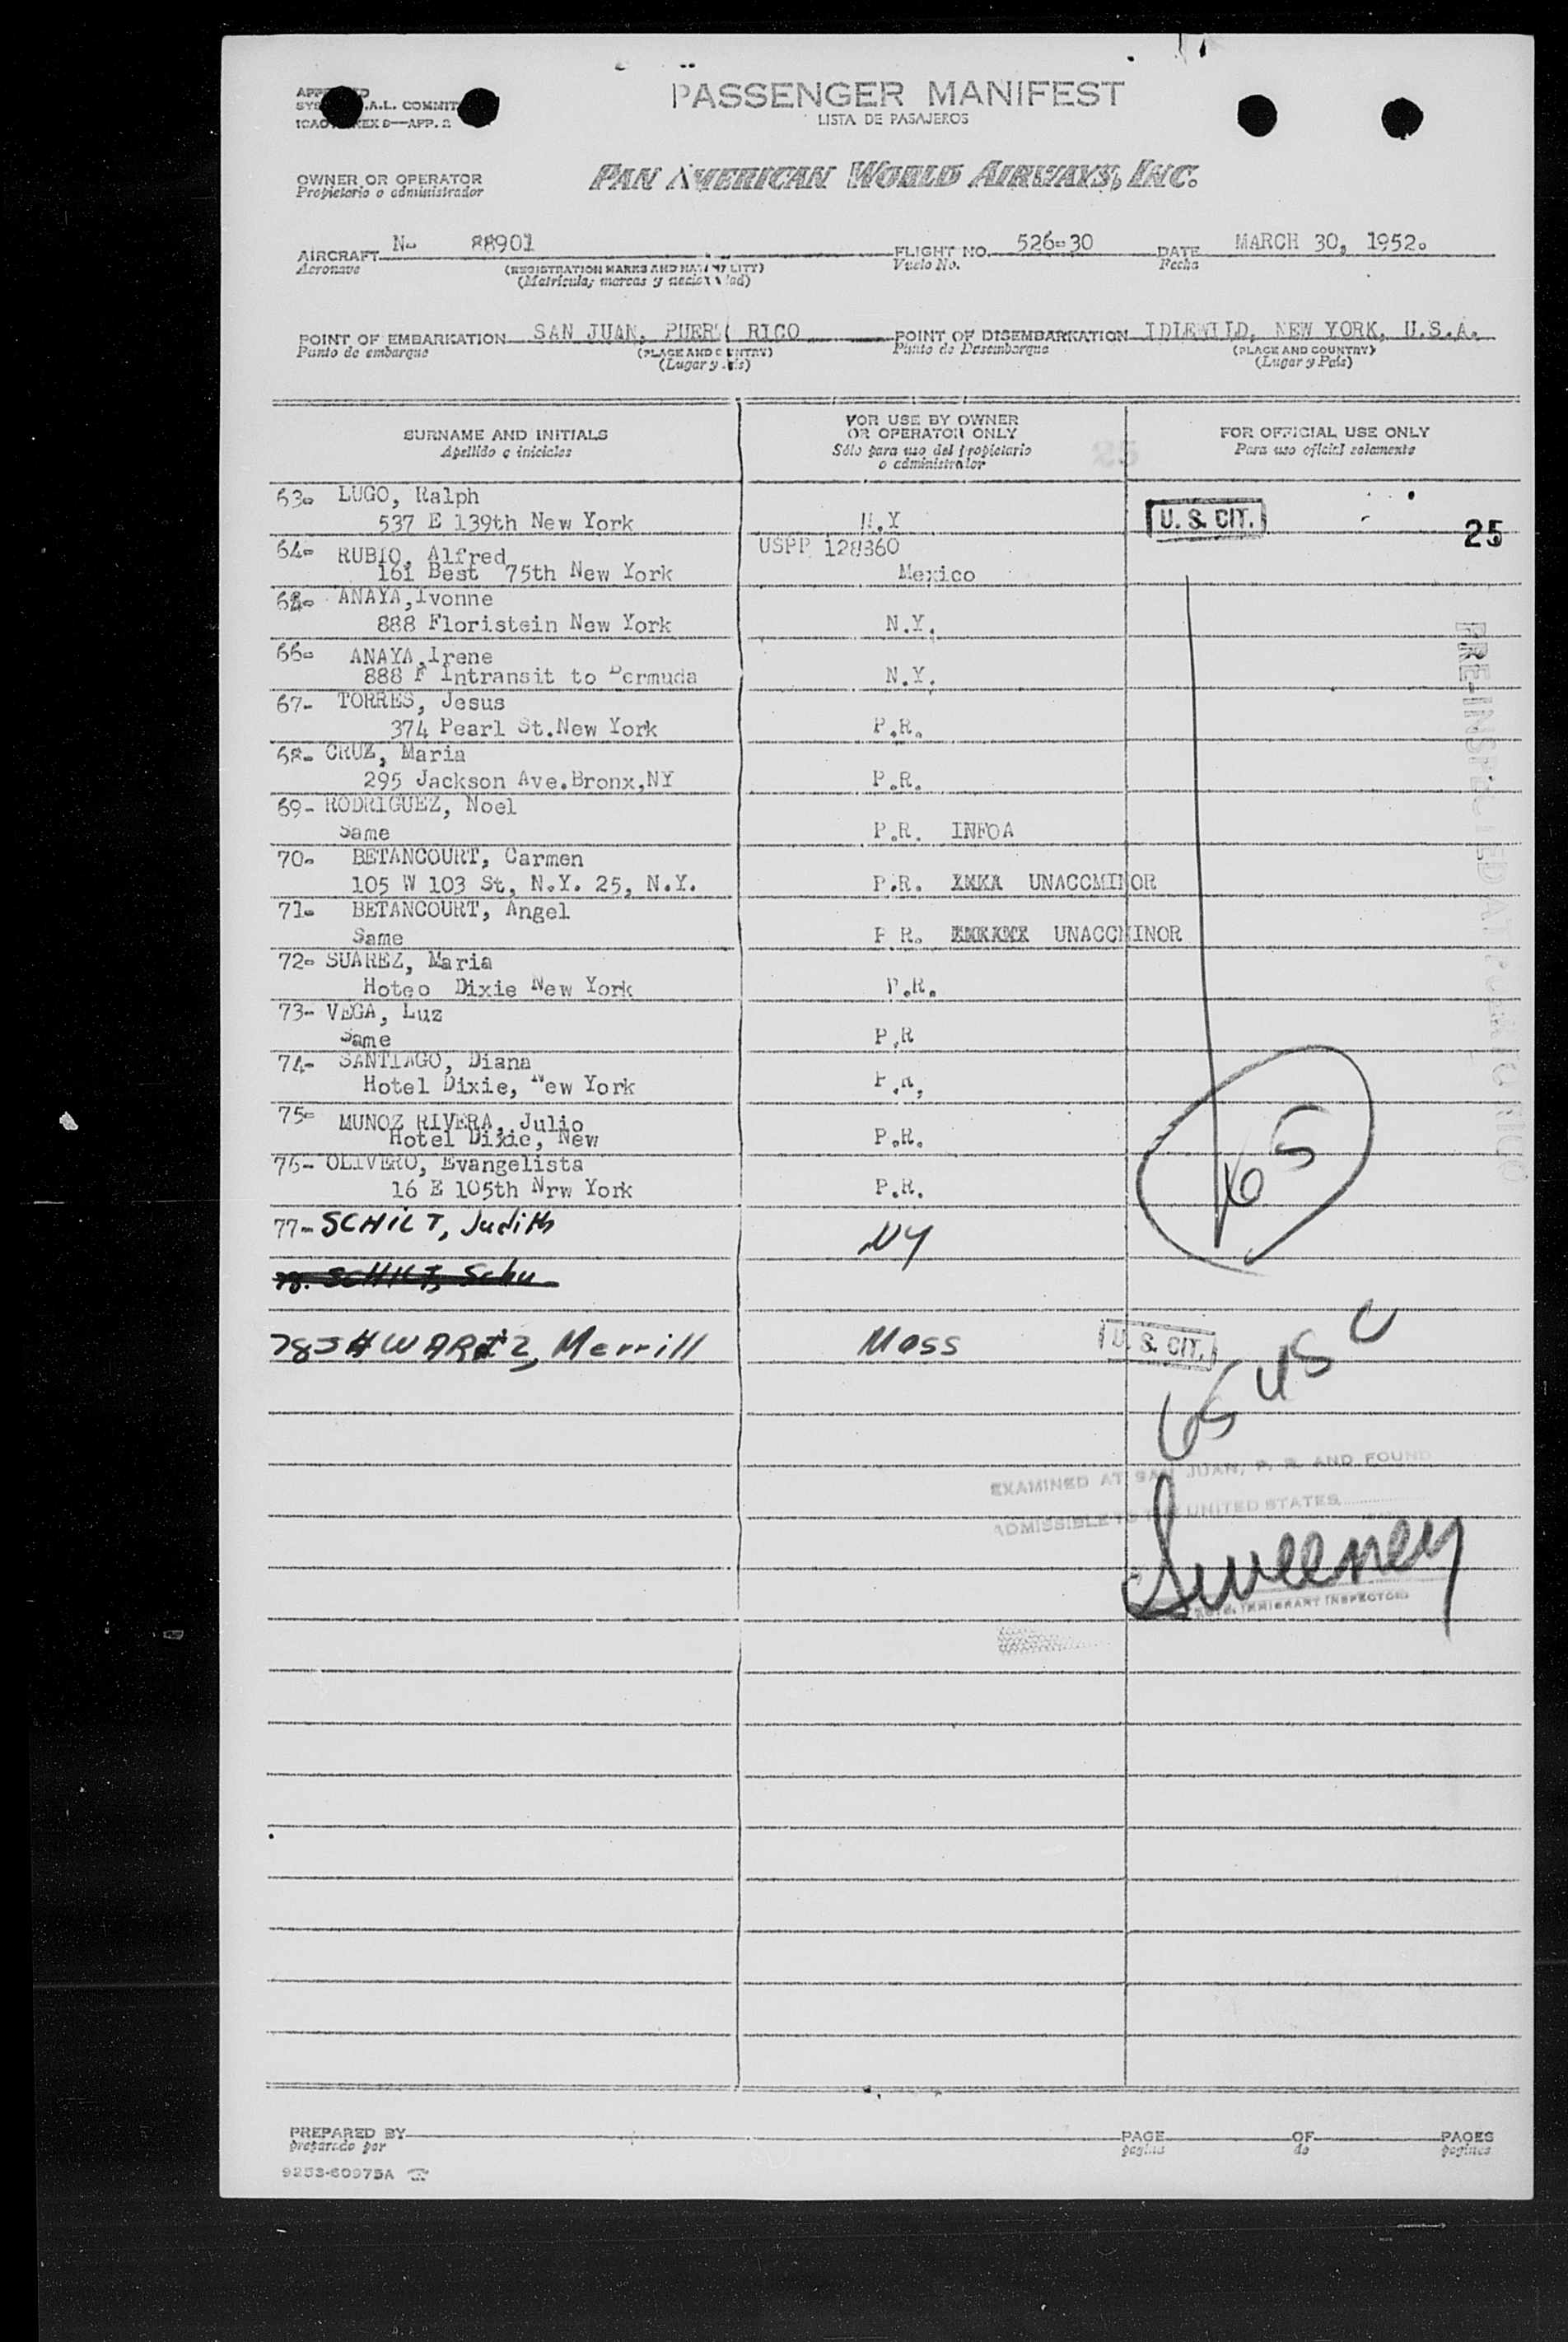 PASSENGER MANIFEST
LISTA DE PASAJEROS
OWNER OR OPERATOR
Propietario o administrador
PAN AMERICAN WORLD AIRWAYS, INC.
AIRCRAFT N- 88901 FLIGHT NO. 526-30 DATE MARCH 30, 1952.
Aeronave (REGISTRATION MARKS AND NATIONALITY) Vuelo No. Fecha
(Matrícula, marcas y nacionalidad)
POINT OF EMBARKATION SAN JUAN, PUERTO RICO POINT OF DISEMBARKATION IDLEWILD, NEW YORK, U.S.A.
Punto de embarque (PLACE AND COUNTRY) Punto de Desembarque (PLACE AND COUNTRY)
(Lugar y País) (Lugar y País)
SURNAME AND INITIALS FOR USE BY OWNER OR OPERATOR ONLY FOR OFFICIAL USE ONLY
Apellido e iniciales Sólo para uso del propietario o administrador Para uso oficial solamente
25
63- LUGO, Ralph
537 E 139th New York N.Y U. S. CIT. 25
64- RUBIO, Alfred USPP 128360
161 Best 75th New York Mexico
ANAYA,Ivonne
888 Floristein New York N.Y.
66- ANAYA,Irene
888 F Intransit to Bermuda N.Y.
67- TORRES, Jesus
374 Pearl St.New York P.R.
68- CRUZ, Maria
295 Jackson Ave.Bronx,NY P.R.
69- RODRIGUEZ, Noel
Same P.R. INFOA
70- BETANCOURT, Carmen
105 W 103 St, N.Y. 25, N.Y. P.R. UNACCMINOR
71- BETANCOURT, Angel
Same P R. UNACCMINOR
72- SUAREZ, Maria
Hoteo Dixie New York P.R.
73- VEGA, Luz
Same P.R
74- SANTIAGO, Diana
Hotel Dixie, New York P.R.
75- MUNOZ RIVERA, Julio
Hotel Dixie, New P.R.
76- OLIVERO, Evangelista
16 E 105th Nrw York P.R.
PRE-INSPECTED AT PUERTO RICO
65
77- SCHILT, Judith NY
78. SCHILT, Schu
78 SHWARTZ, Merrill Mass U. S. CIT.
65 USC
EXAMINED AT SAN JUAN, P. R. AND FOUND
ADMISSIBLE TO THE UNITED STATES
Sweeney
IMMIGRANT INSPECTOR
PREPARED BY PAGE OF PAGES
preparado por pagina de paginas
9253-60975A